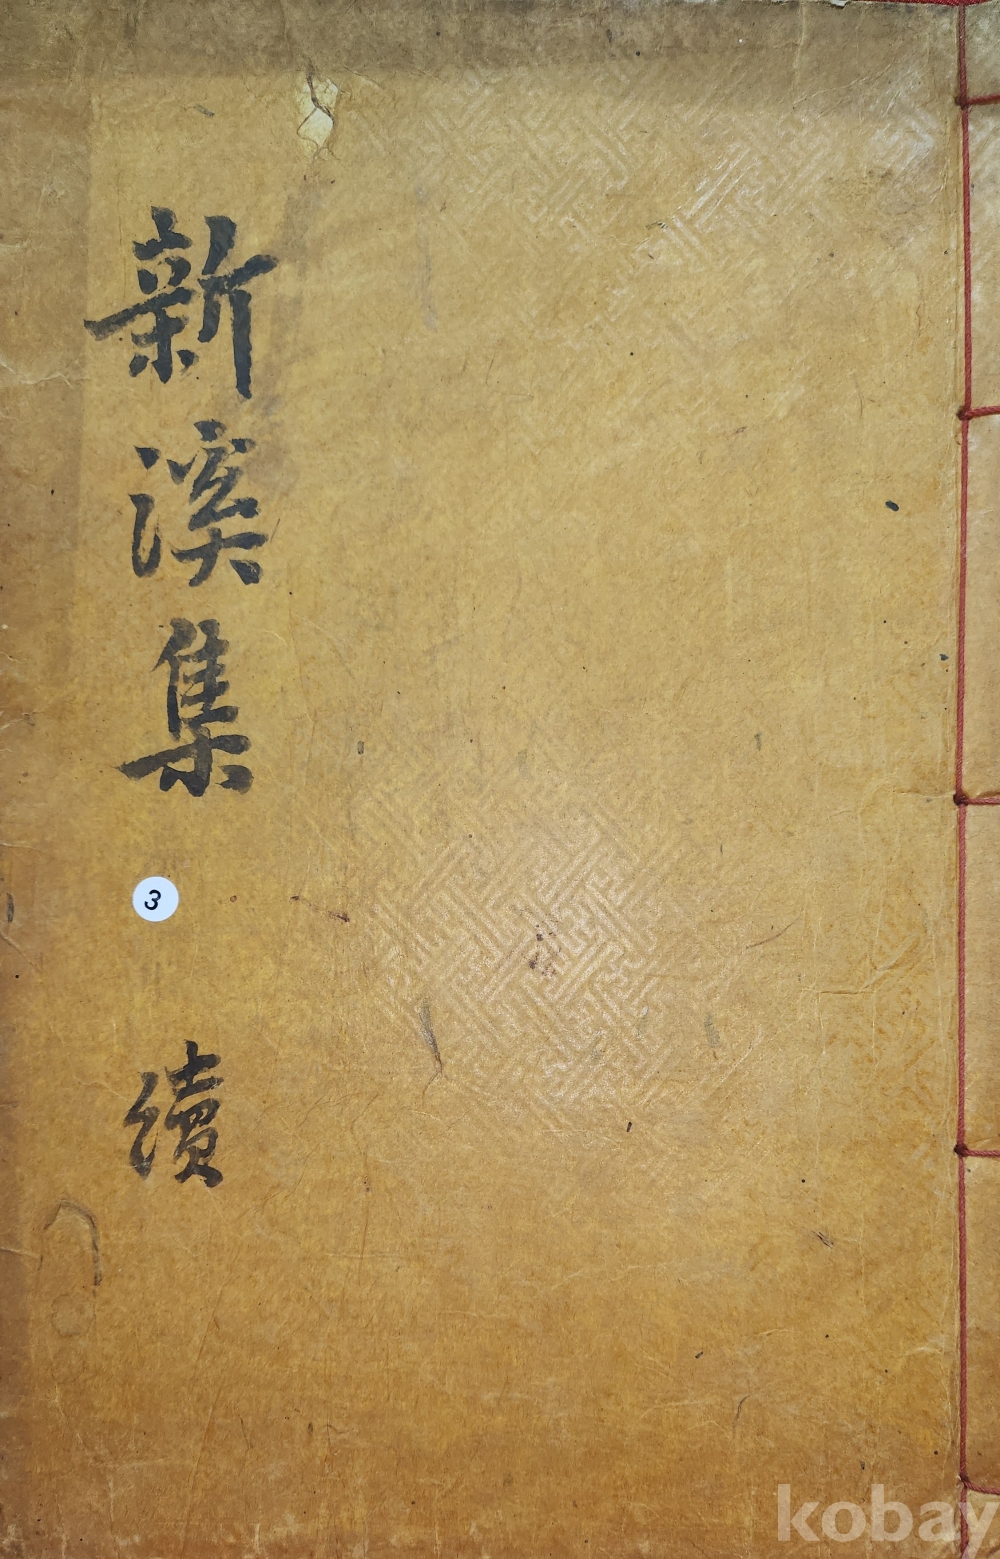 新溪集
3
續
kobay